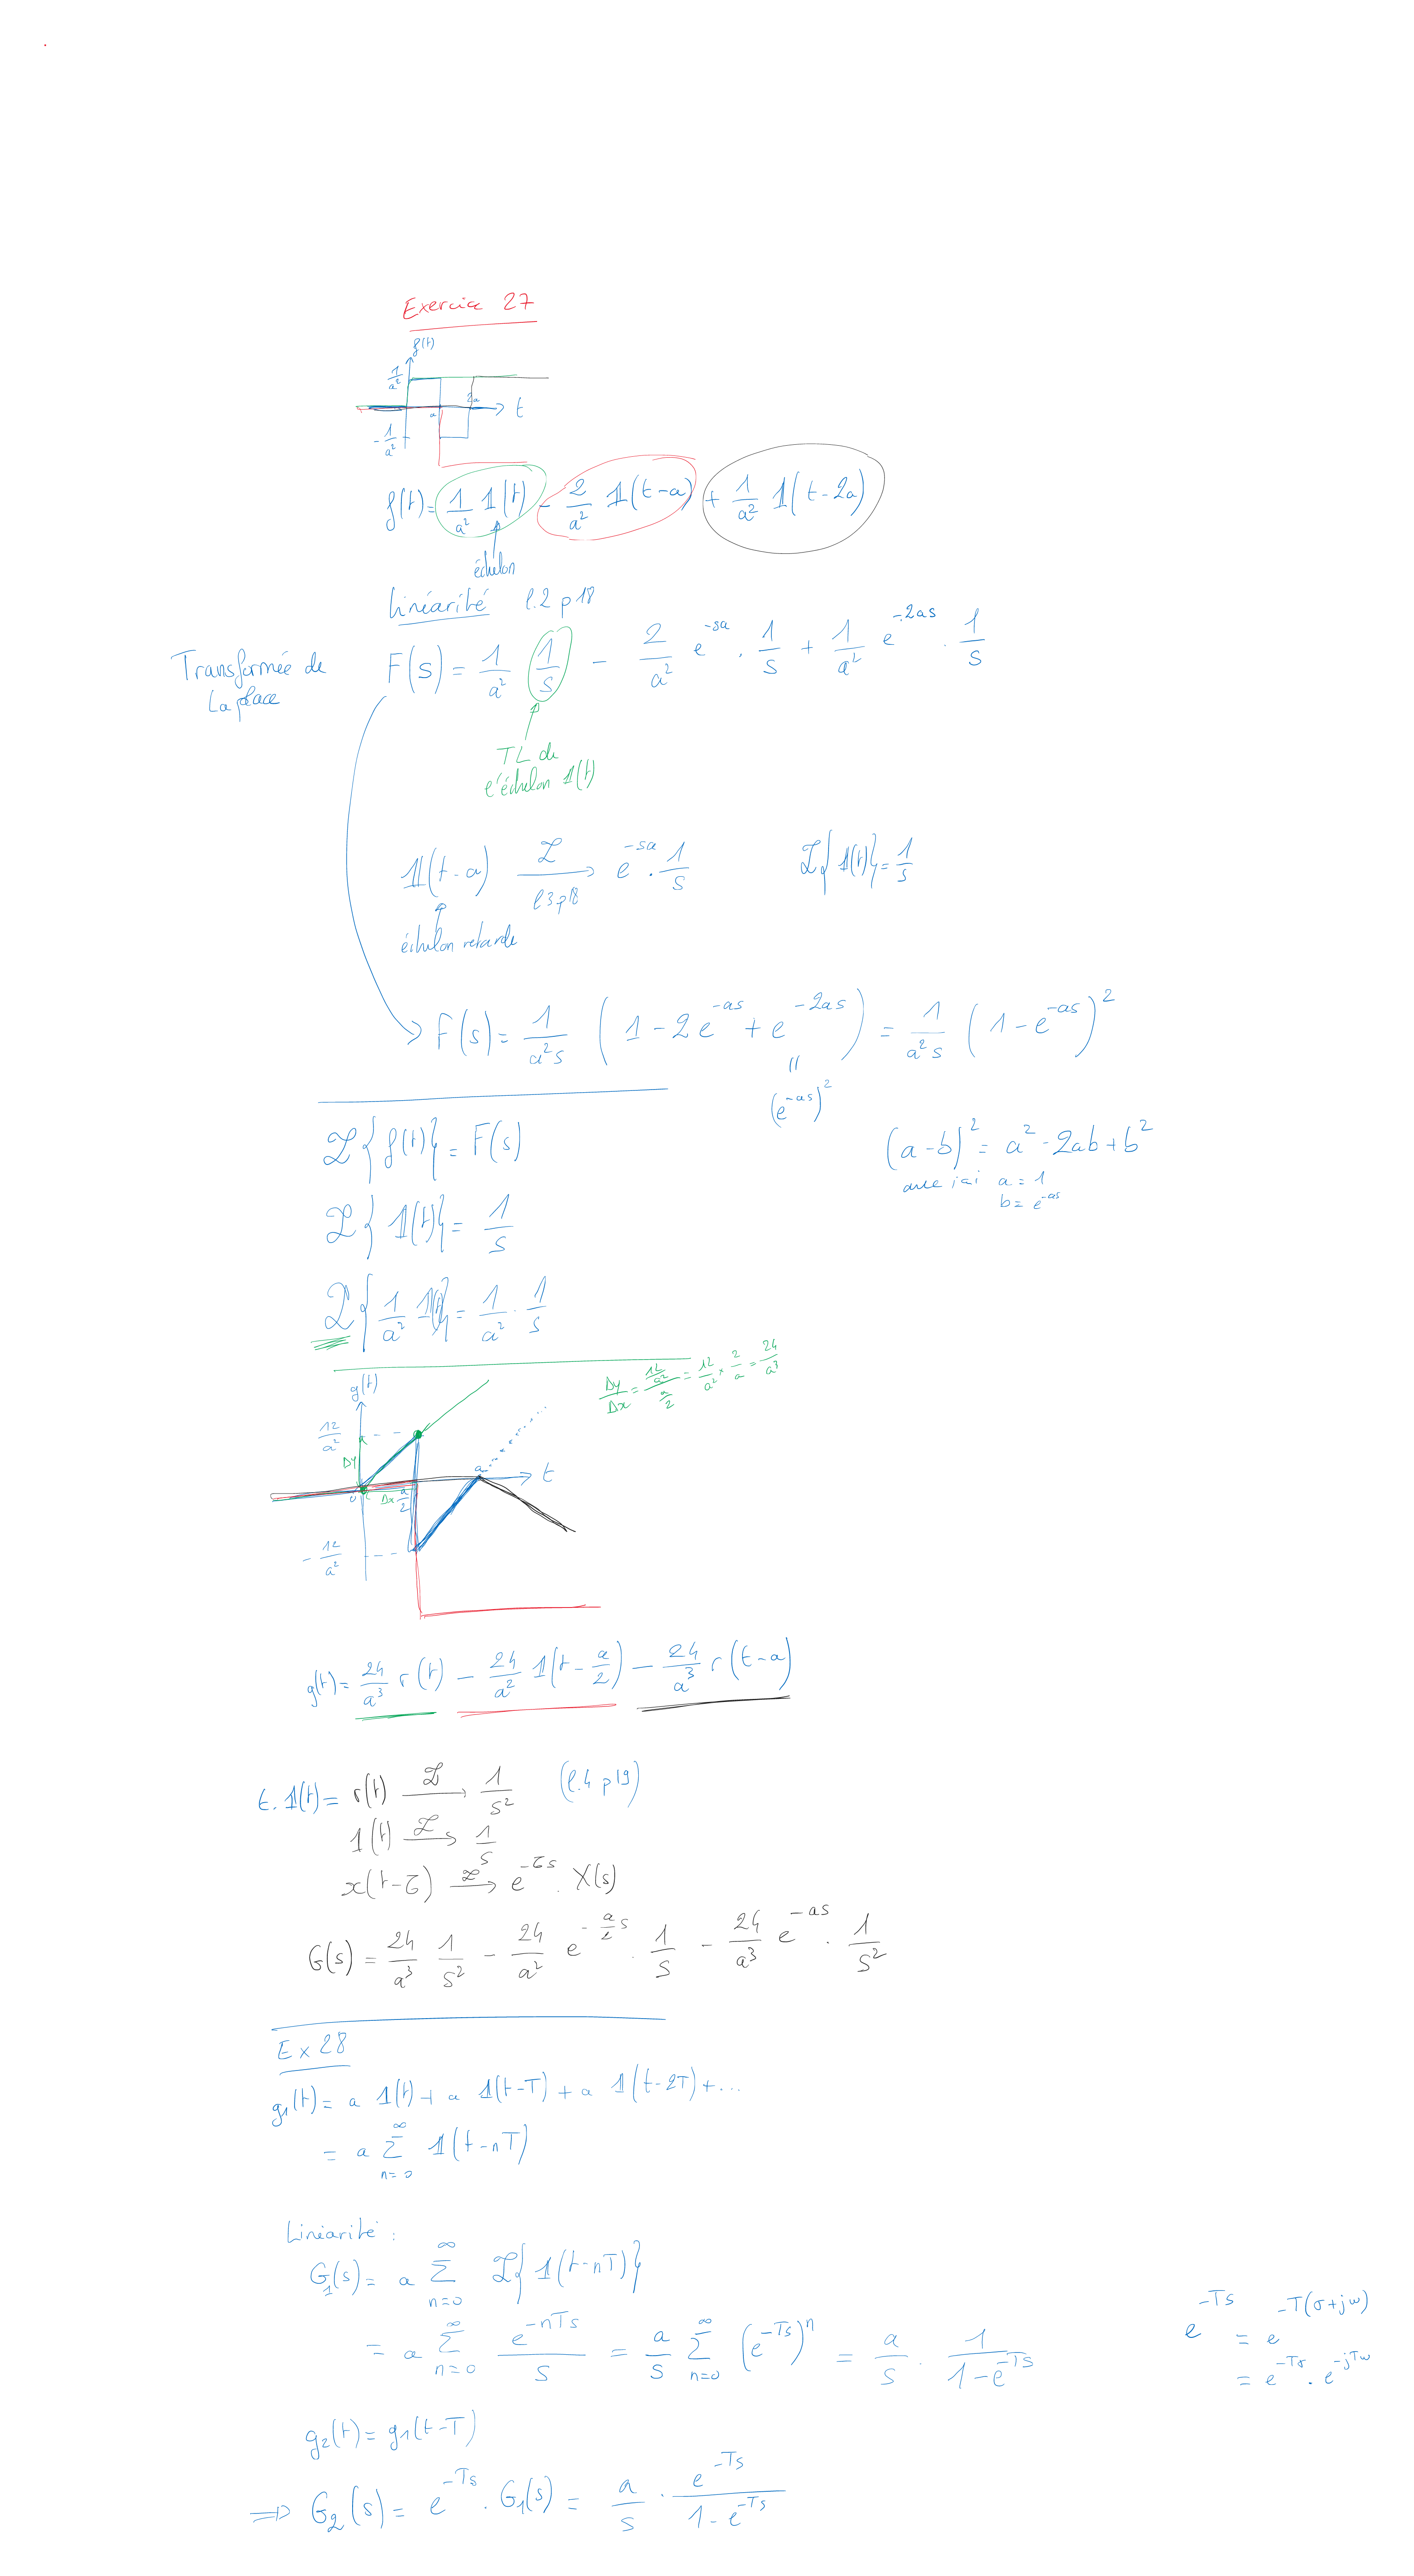 Exercice 27
f(t)
1/a²
a
2a
t
-1/a²
f(t) = 1/a² 𝟙(t) - 2/a² 𝟙(t-a) + 1/a² 𝟙(t-2a)
échelon
Linéarité l.2 p18
Transformée de
Laplace
F(s) = 1/a² 1/s - 2/a² e^(-sa) . 1/s + 1/a² e^(-2as) . 1/s
TL de
l'échelon 𝟙(t)
𝟙(t-a) ℒ→ e^(-sa) . 1/s
l3p18
ℒ{𝟙(t)} = 1/s
échelon retardé
→ F(s) = 1/(a²s) (1 - 2e^(-as) + e^(-2as)) = 1/(a²s) (1 - e^(-as))²
=
(e^(-as))²
(a-b)² = a² - 2ab + b²
avec ici a = 1
b = e^(-as)
ℒ{f(t)} = F(s)
ℒ{𝟙(t)} = 1/s
ℒ{1/a² 𝟙(t)} = 1/a² . 1/s
Δy/Δx = (12/a²)/(a/2) = 12/a² × 2/a = 24/a³
g(t)
12/a²
Δy
0
Δx
a/2
a
t
-12/a²
g(t) = 24/a³ r(t) - 24/a² 𝟙(t - a/2) - 24/a³ r(t-a)
t.𝟙(t) = r(t) ℒ→ 1/s² (l.4 p19)
𝟙(t) ℒ→ 1/s
x(t-τ) ℒ→ e^(-τs) . X(s)
G(s) = 24/a³ 1/s² - 24/a² e^(-a/2 s) . 1/s - 24/a³ e^(-as) . 1/s²
Ex 28
g₁(t) = a 𝟙(t) + a 𝟙(t-T) + a 𝟙(t-2T) + ...
= a ∑_(n=0)^∞ 𝟙(t-nT)
Linéarité :
G₁(s) = a ∑_(n=0)^∞ ℒ{𝟙(t-nT)}
= a ∑_(n=0)^∞ e^(-nTs)/s = a/s ∑_(n=0)^∞ (e^(-Ts))^n = a/s . 1/(1-e^(-Ts))
e^(-Ts) = e^(-T(σ+jω))
= e^(-Tσ) . e^(-jTω)
g₂(t) = g₁(t-T)
⇒ G₂(s) = e^(-Ts) . G₁(s) = a/s . e^(-Ts)/(1-e^(-Ts))